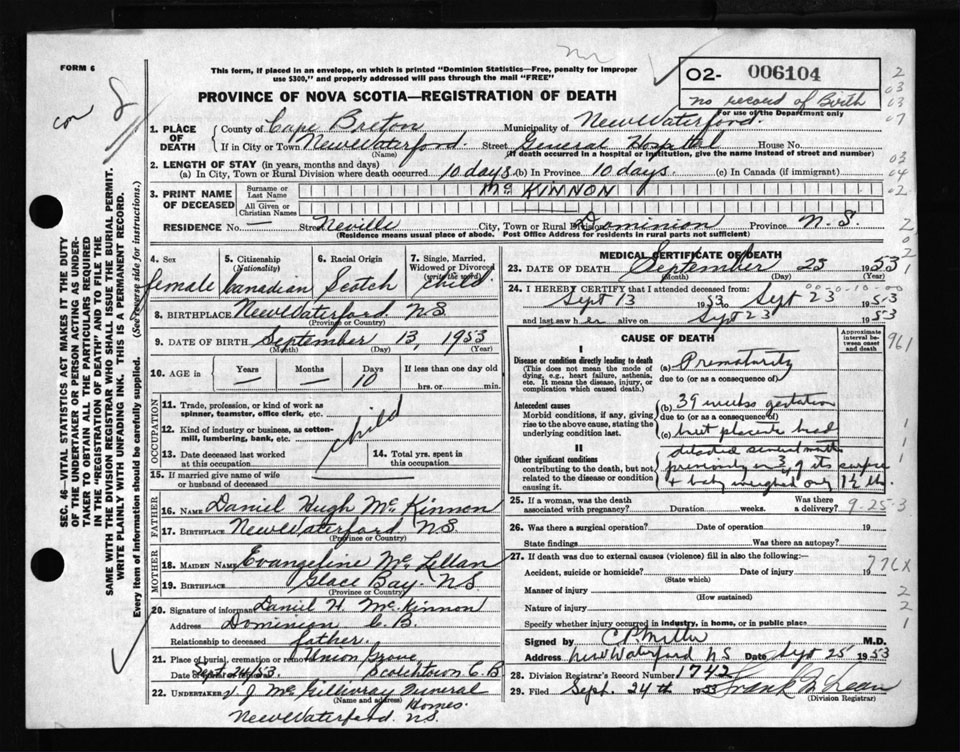 FORM 6
This form, if placed in an envelope, on which is printed "Dominion Statistics—Free, penalty for improper
use $300," and properly addressed will pass through the mail "FREE"
O2- 006104
no record of Birth
For use of the Department only
PROVINCE OF NOVA SCOTIA—REGISTRATION OF DEATH
1. PLACE OF DEATH County of Cape Breton Municipality of New Waterford.
If in City or Town New Waterford. (Name) Street General Hospital House No.
(If death occurred in a hospital or institution, give the name instead of street and number)
2. LENGTH OF STAY (in years, months and days)
(a) In City, Town or Rural Division where death occurred 10 days (b) In Province 10 days. (c) In Canada (if immigrant)
3. PRINT NAME OF DECEASED Surname or Last Name Mc KINNON
All Given or Christian Names —
RESIDENCE No. — Street Neville City, Town or Rural Division Dominion Province N.S.
(Residence means usual place of abode. Post Office Address for residents in rural parts not sufficient)
SEC. 46—VITAL STATISTICS ACT MAKES IT THE DUTY
OF THE UNDERTAKER OR PERSON ACTING AS UNDER-
TAKER TO OBTAIN ALL THE PARTICULARS REQUIRED
IN THE "REGISTRATION OF DEATH" AND TO FILE THE
SAME WITH THE DIVISION REGISTRAR WHO SHALL ISSUE THE BURIAL PERMIT.
WRITE PLAINLY WITH UNFADING INK. THIS IS A PERMANENT RECORD.
Every item of information should be carefully supplied. (See reverse side for instructions.)
4. Sex female
5. Citizenship (Nationality) Canadian
6. Racial Origin Scotch
7. Single, Married, Widowed or Divorced (write the word) Child
8. BIRTHPLACE New Waterford N.S.
(Province or Country)
9. DATE OF BIRTH September 13, 1953
(Month) (Day) (Year)
10. AGE in Years — Months — Days 10 If less than one day
hrs. or min.
OCCUPATION
11. Trade, profession, or kind of work as
spinner, teamster, office clerk, etc.
12. Kind of industry or business, as cotton-
mill, lumbering, bank, etc.
child
13. Date deceased last worked
at this occupation
14. Total yrs. spent in
this occupation
15. If married give name of wife
or husband of deceased
FATHER
16. NAME Daniel Hugh Mc Kinnon
17. BIRTHPLACE New Waterford N.S.
(Province or Country)
MOTHER
18. MAIDEN NAME Evangeline Mc Lellan
19. BIRTHPLACE Glace Bay. N.S.
(Province or Country)
20. Signature of informant Daniel H. Mc.Kinnon
Address Dominion C.B.
Relationship to deceased father.
21. Place of burial, cremation or removal Union Grove
Date of burial or removal Sept. 24/53 Scotchtown C.B
22. UNDERTAKER J Mc Gillivray Funeral Homes.
(Name and address)
New Waterford. N.S.
MEDICAL CERTIFICATE OF DEATH
23. DATE OF DEATH September 23 1953
(Month) (Day) (Year)
24. I HEREBY CERTIFY that I attended deceased from:
Sept 13 1953 to Sept 23 1953
and last saw her alive on Sept 23 1953
CAUSE OF DEATH
Approximate interval between onset and death
I
Disease or condition directly leading to death
(This does not mean the mode of
dying, e.g., heart failure, asthenia,
etc. It means the disease, injury, or
complication which caused death.)
(a) Prematurity
due to (or as a consequence of)
Antecedent causes
Morbid conditions, if any, giving
rise to the above cause, stating the
underlying condition last.
(b) 39 weeks gestation
due to (or as a consequence of)
(c) but placenta had
II
Other significant conditions
contributing to the death, but not
related to the disease or condition
causing it.
previously in 3/4 of its surface
+ baby weighed only
25. If a woman, was the death
associated with pregnancy? Duration weeks. Was there a delivery?
9-25-3
26. Was there a surgical operation? Date of operation 19
State findings Was there an autopsy?
27. If death was due to external causes (violence) fill in also the following:—
Accident, suicide or homicide? Date of injury 19
(State which)
Manner of injury
(How sustained)
Nature of injury
Specify whether injury occurred in industry, in home, or in public place
Signed by C.P. Miller M.D.
Address New Waterford NS Date Sept 25 1953
28. Division Registrar's Record Number 1742
29. Filed Sept. 24th 1953 Frank
(Division Registrar)